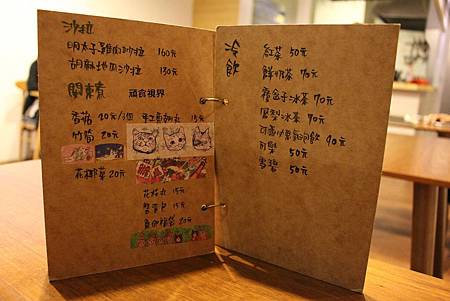 沙拉
明太子雞肉沙拉 160元
胡麻地瓜沙拉 130元
關東煮
頑食視界
香菇 20元/個 手工魚丸 15元
竹筍 20元
花椰菜 20元
花枝丸 15元
15元
魚卵福袋 20元
冷飲
紅茶 50元
鮮奶茶 70元
冰茶 70元
冰茶 70元
90元
可樂 50元
雪碧 50元